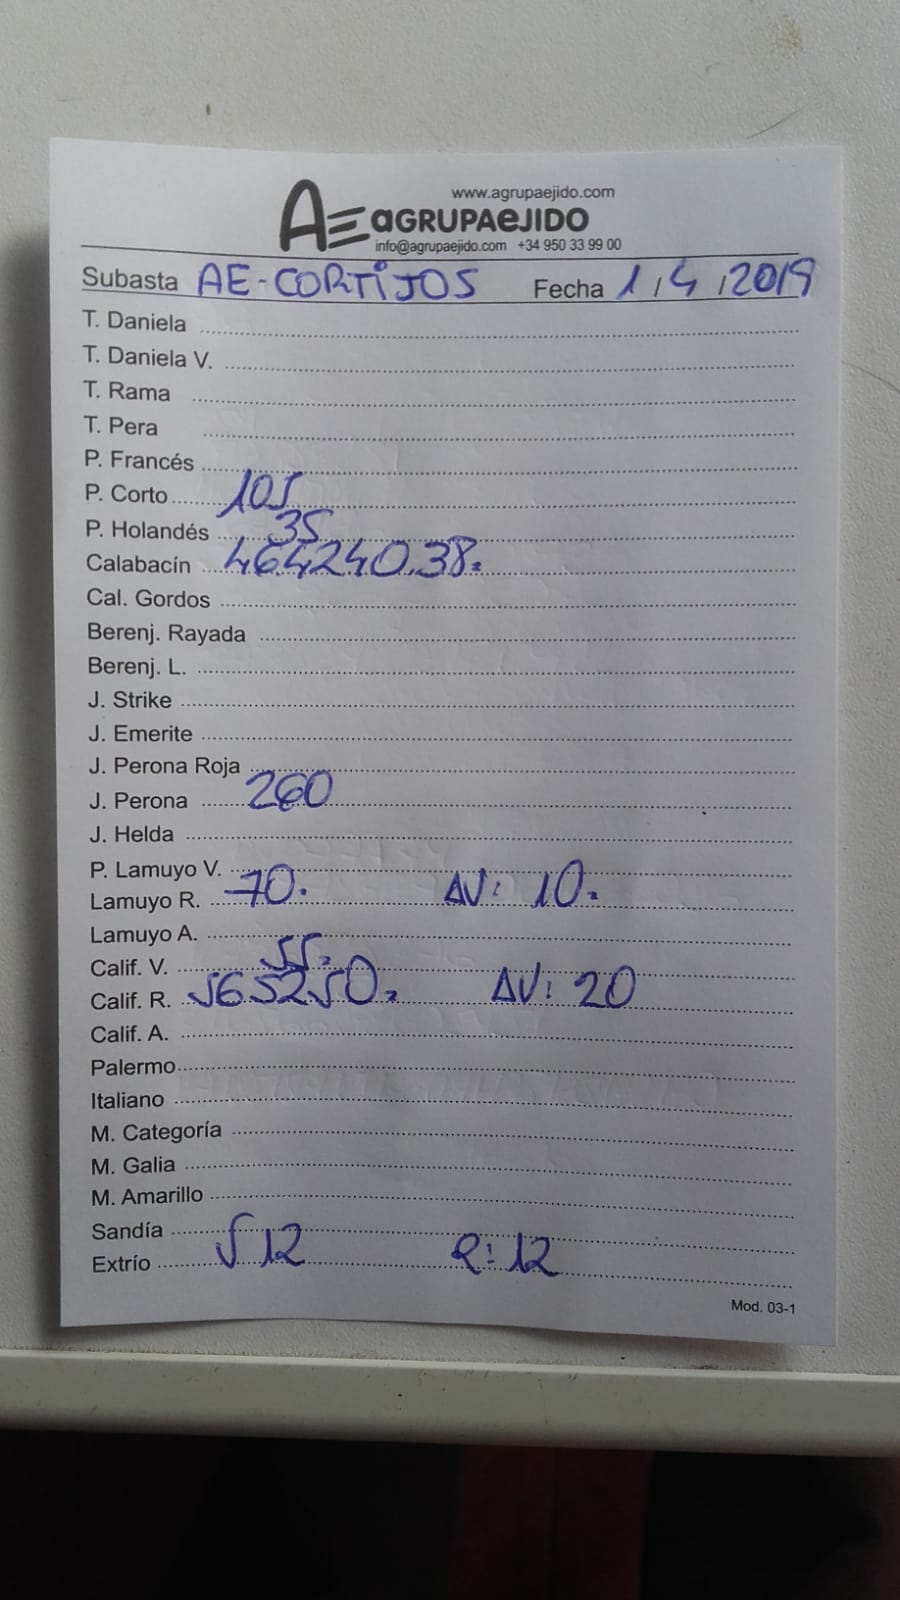 www.agrupaejido.com
AE aGRUPAeJIDO
info@agrupaejido.com +34 950 33 99 00
Subasta AE-CORTIJOS Fecha 1/4/2019
T. Daniela
T. Daniela V.
T. Rama
T. Pera
P. Francés
P. Corto 105
P. Holandés 35
Calabacín 464240.38.
Cal. Gordos
Berenj. Rayada
Berenj. L.
J. Strike
J. Emerite
J. Perona Roja
J. Perona 260
J. Helda
P. Lamuyo V.
Lamuyo R. 70. ΔV: 10.
Lamuyo A.
Calif. V. 55.
Calif. R. 565250. ΔV: 20
Calif. A.
Palermo
Italiano
M. Categoría
M. Galia
M. Amarillo
Sandía
Extrío 12 R: 12
Mod. 03-1